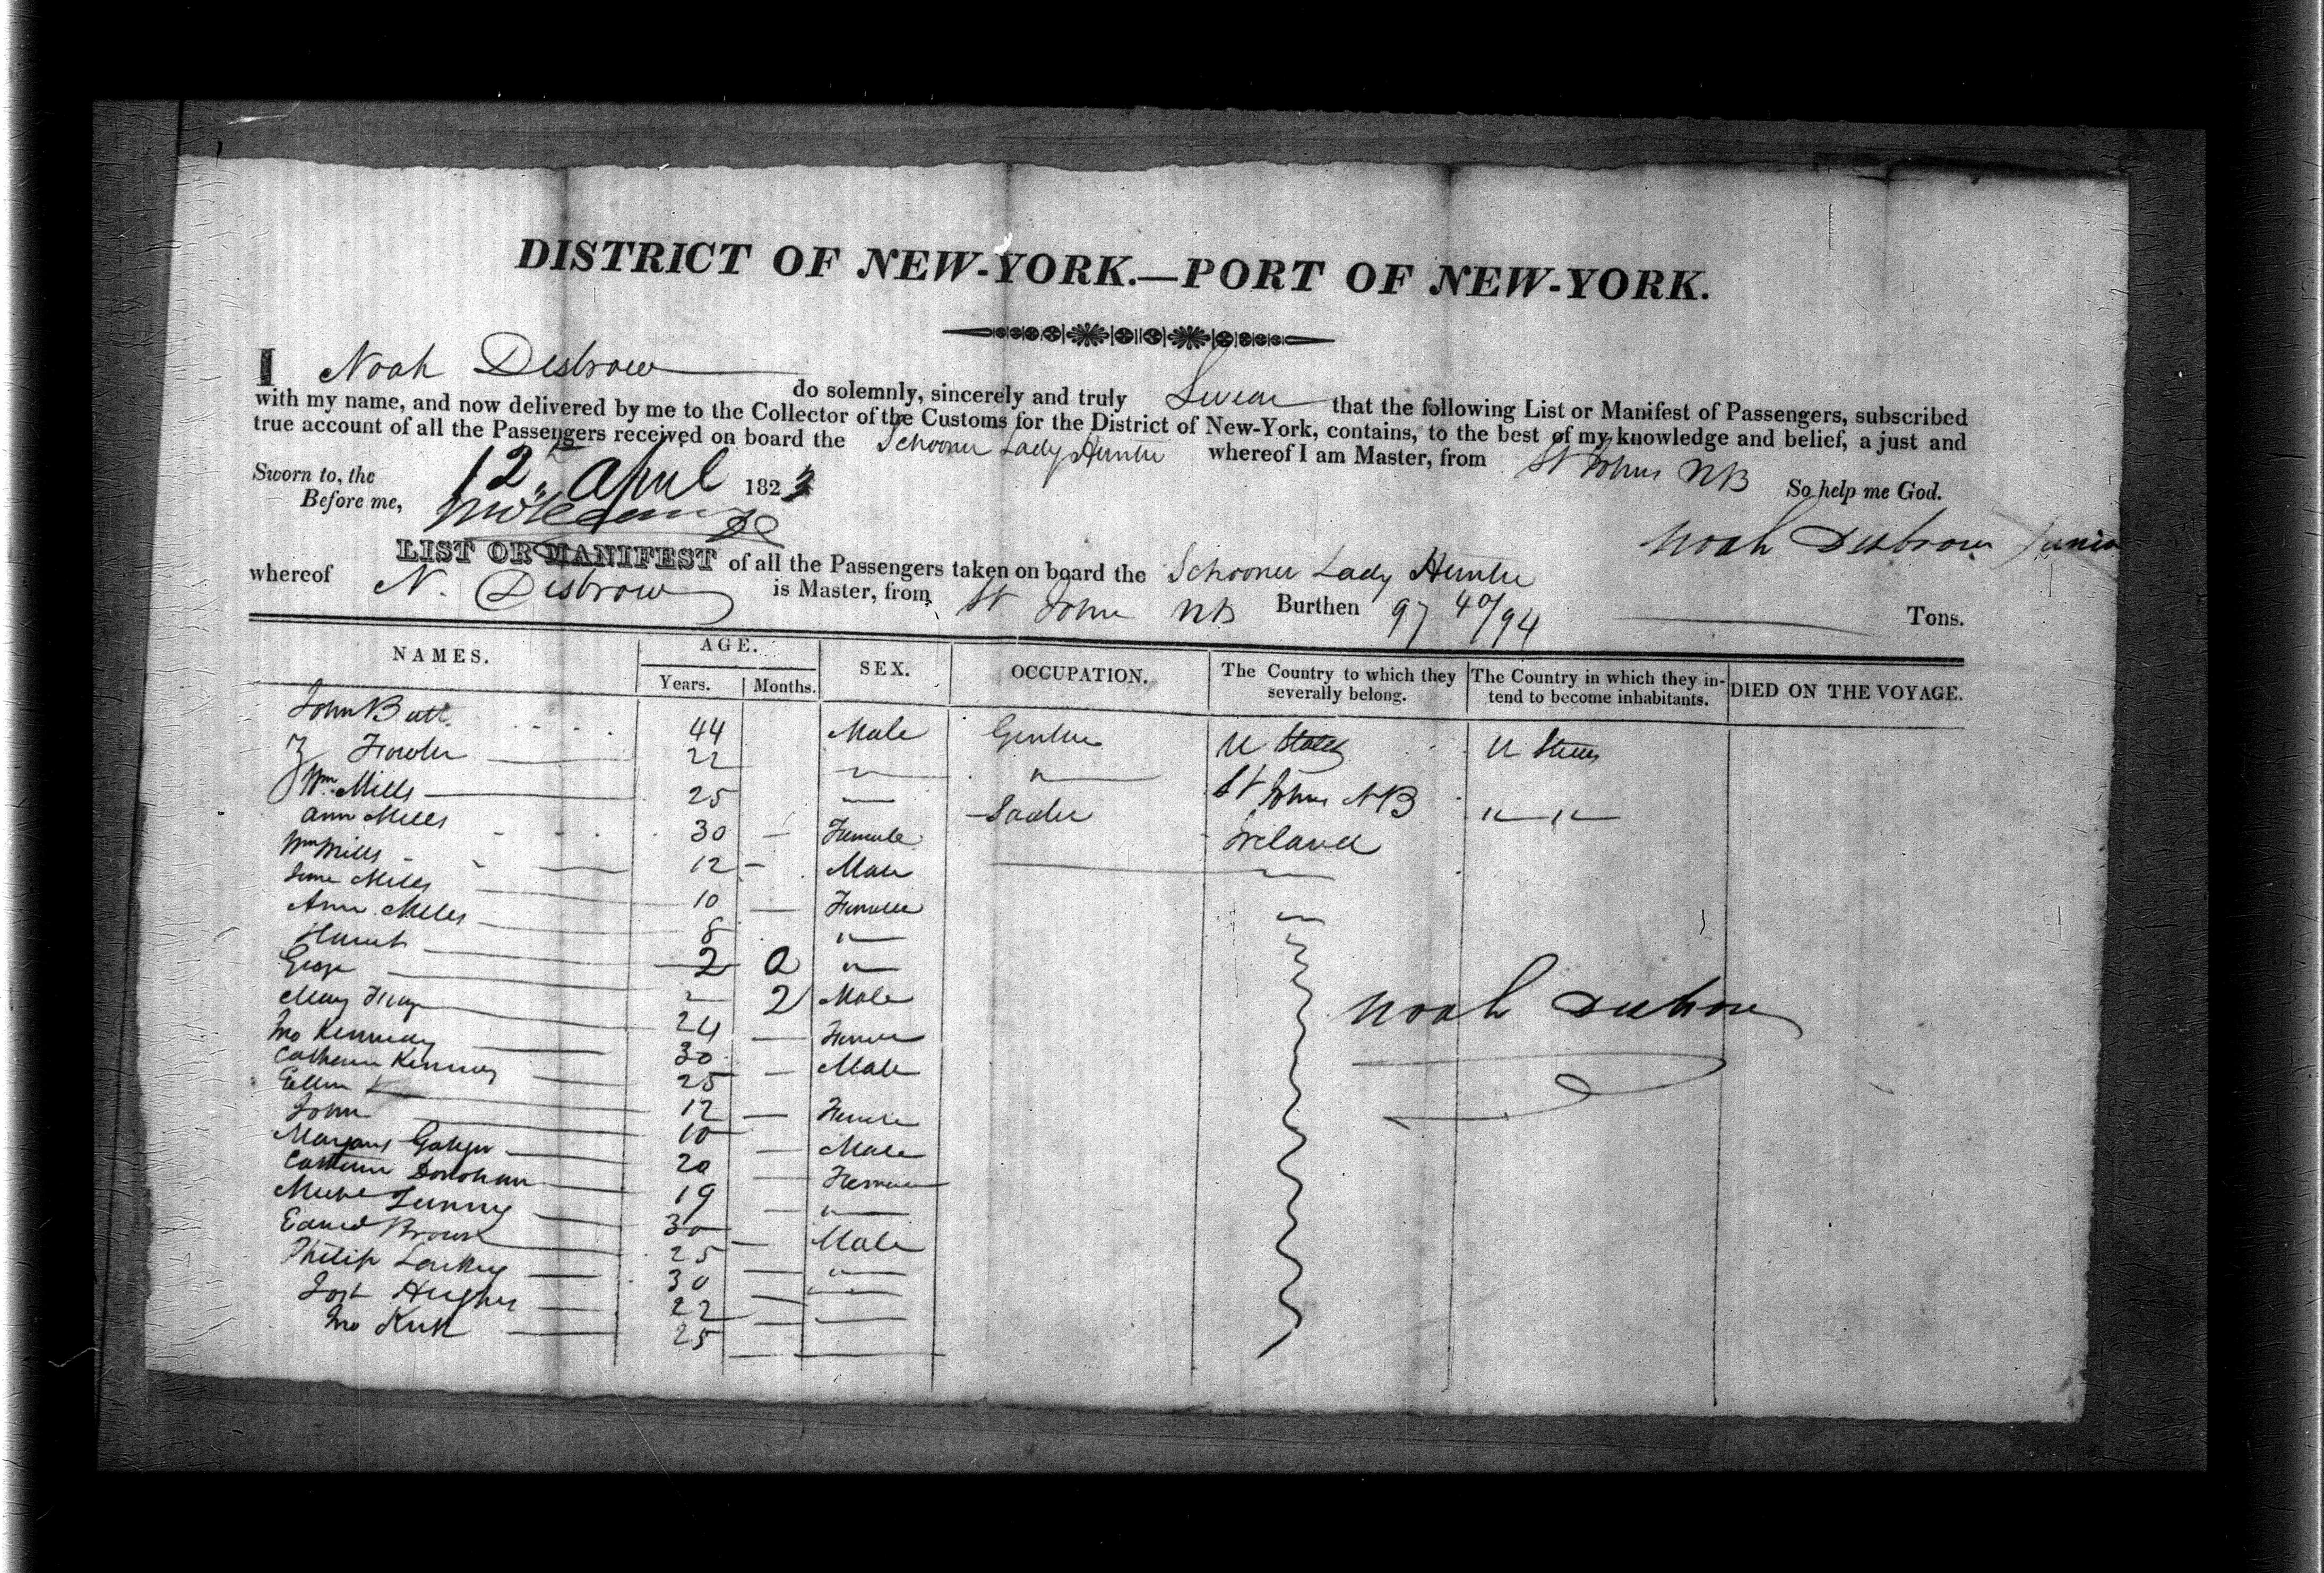 DISTRICT OF NEW-YORK.—PORT OF NEW-YORK.
I Noah Disbrow do solemnly, sincerely and truly Swear that the following List or Manifest of Passengers, subscribed
with my name, and now delivered by me to the Collector of the Customs for the District of New-York, contains, to the best of my knowledge and belief, a just and
true account of all the Passengers received on board the Schooner Lady Hunter whereof I am Master, from St Johns NB So help me God.
Sworn to, the 12 April 1823
Before me,
Noah Disbrow Junior
LIST OR MANIFEST of all the Passengers taken on board the Schooner Lady Hunter
whereof N. Disbrow is Master, from St John NB Burthen 97 40/94 Tons.
NAMES. AGE. SEX. OCCUPATION. The Country to which they severally belong. The Country in which they intend to become inhabitants. DIED ON THE VOYAGE.
Years. Months.
John 44 Male U States U States
Fowler 22 " "
Wm Mills 25 St Johns NB " "
Ann Mills 30 Female Ireland
Wm Mills 12 Male
Mills 10 Female
Ann Mills 8 "
2 0 "
George 2 Male
Mary 24 Female
Jno Kennedy 30 Male
Catherine Kennedy 25
Ellen K 12 Female
John 10 Male
Margaret 20 Female
Catherine Donohue 19 "
30 Male
Edward Brown 25 "
Philip 30 "
Hughes 22
Jno Kirk 25
Noah Disbrow